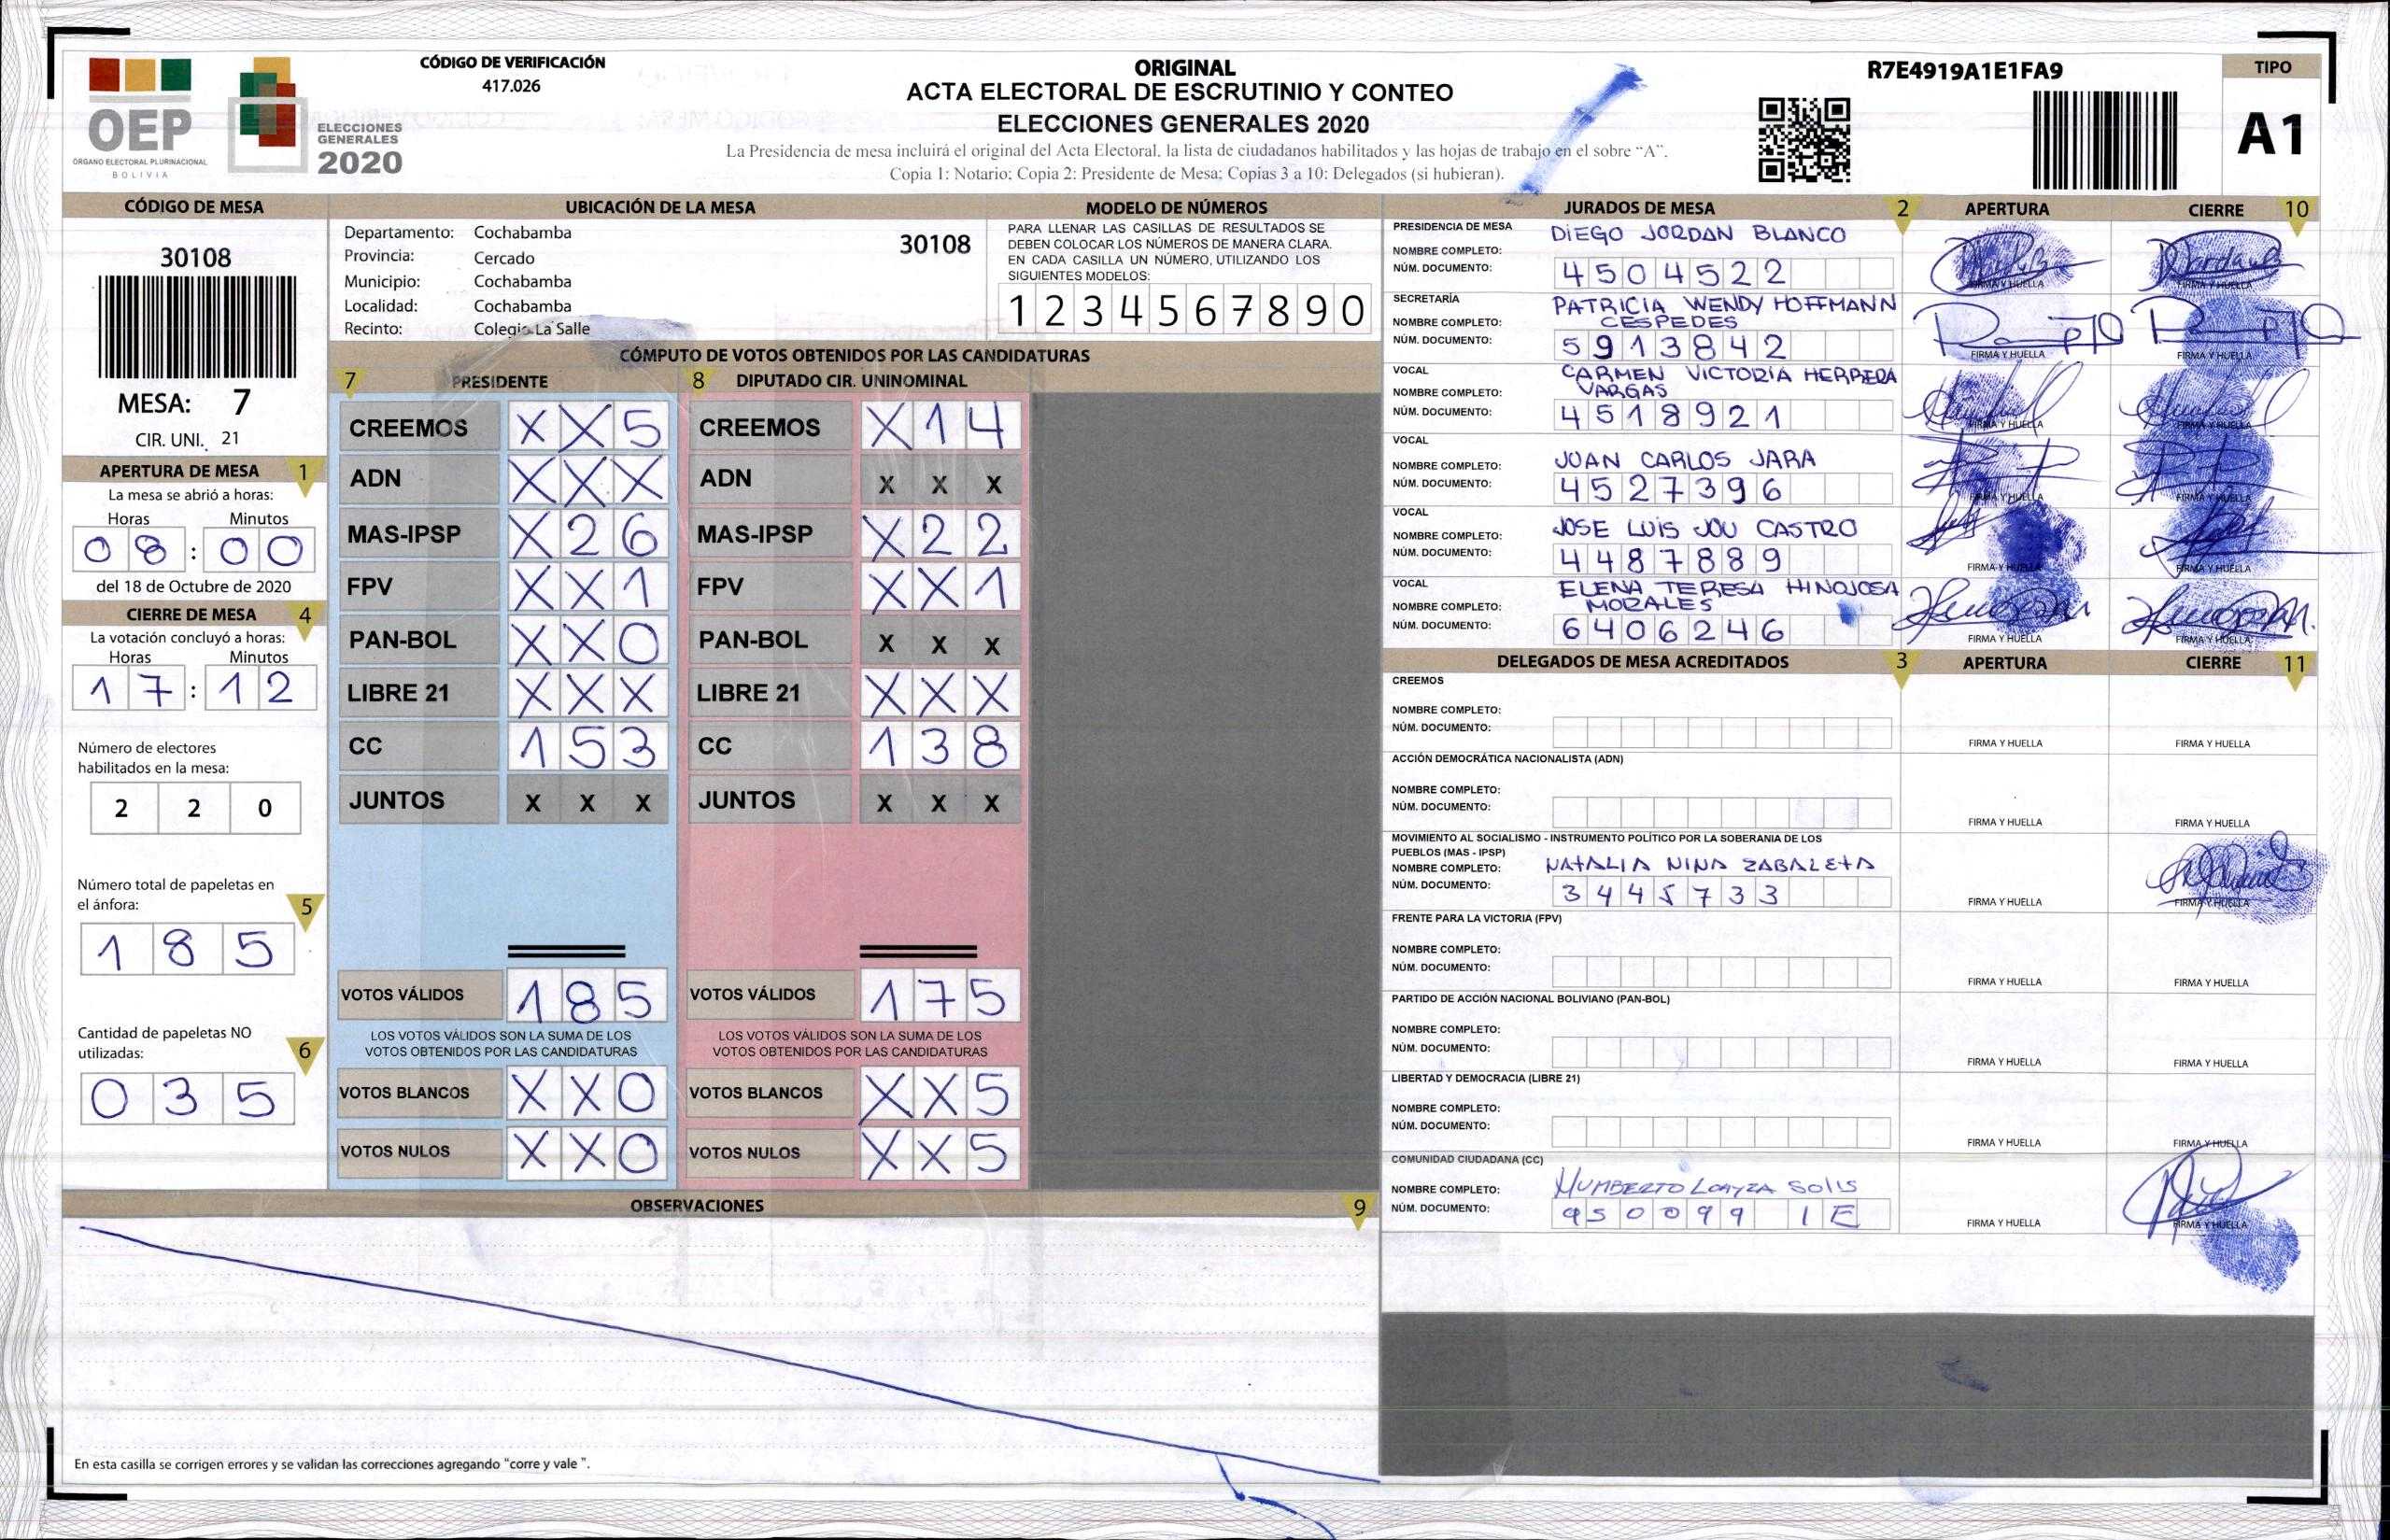 CÓDIGO DE VERIFICACIÓN
417.026
OEP
ORGANO ELECTORAL PLURINACIONAL
BOLIVIA
ELECCIONES
GENERALES
2020
ORIGINAL
ACTA ELECTORAL DE ESCRUTINIO Y CONTEO
ELECCIONES GENERALES 2020
La Presidencia de mesa incluirá el original del Acta Electoral, la lista de ciudadanos habilitados y las hojas de trabajo en el sobre “A”.
Copia 1: Notario; Copia 2: Presidente de Mesa; Copias 3 a 10: Delegados (si hubieran).
R7E4919A1E1FA9
TIPO
A1
CÓDIGO DE MESA
30108
MESA: 7
CIR. UNI. 21
APERTURA DE MESA 1
La mesa se abrió a horas:
Horas Minutos
08:00
del 18 de Octubre de 2020
CIERRE DE MESA 4
La votación concluyó a horas:
Horas Minutos
17:12
Número de electores
habilitados en la mesa:
2 2 0
Número total de papeletas en
el ánfora: 5
1 8 5
Cantidad de papeletas NO
utilizadas: 6
0 3 5
UBICACIÓN DE LA MESA
Departamento: Cochabamba 30108
Provincia: Cercado
Municipio: Cochabamba
Localidad: Cochabamba
Recinto: Colegio La Salle
MODELO DE NÚMEROS
PARA LLENAR LAS CASILLAS DE RESULTADOS SE
DEBEN COLOCAR LOS NÚMEROS DE MANERA CLARA.
EN CADA CASILLA UN NÚMERO, UTILIZANDO LOS
SIGUIENTES MODELOS:
1 2 3 4 5 6 7 8 9 0
CÓMPUTO DE VOTOS OBTENIDOS POR LAS CANDIDATURAS
7 PRESIDENTE 8 DIPUTADO CIR. UNINOMINAL
CREEMOS X X 5 CREEMOS X 1 4
ADN X X X ADN X X X
MAS-IPSP X 2 6 MAS-IPSP X 2 2
FPV X X 1 FPV X X 1
PAN-BOL X X 0 PAN-BOL X X X
LIBRE 21 X X X LIBRE 21 X X X
CC 1 5 3 CC 1 3 8
JUNTOS X X X JUNTOS X X X
VOTOS VÁLIDOS 1 8 5 VOTOS VÁLIDOS 1 7 5
LOS VOTOS VÁLIDOS SON LA SUMA DE LOS LOS VOTOS VÁLIDOS SON LA SUMA DE LOS
VOTOS OBTENIDOS POR LAS CANDIDATURAS VOTOS OBTENIDOS POR LAS CANDIDATURAS
VOTOS BLANCOS X X 0 VOTOS BLANCOS X X 5
VOTOS NULOS X X 0 VOTOS NULOS X X 5
OBSERVACIONES 9
En esta casilla se corrigen errores y se validan las correcciones agregando “corre y vale ”.
JURADOS DE MESA 2 APERTURA CIERRE 10
PRESIDENCIA DE MESA
NOMBRE COMPLETO: DIEGO JORDAN BLANCO
NÚM. DOCUMENTO: 4504522 FIRMA Y HUELLA FIRMA Y HUELLA
SECRETARÍA
NOMBRE COMPLETO: PATRICIA WENDY HOFFMANN
CESPEDES
NÚM. DOCUMENTO: 5913842 FIRMA Y HUELLA FIRMA Y HUELLA
VOCAL
NOMBRE COMPLETO: CARMEN VICTORIA HERRERA
VARGAS
NÚM. DOCUMENTO: 4518921 FIRMA Y HUELLA FIRMA Y HUELLA
VOCAL
NOMBRE COMPLETO: JUAN CARLOS JARA
NÚM. DOCUMENTO: 4527396 FIRMA Y HUELLA FIRMA Y HUELLA
VOCAL
NOMBRE COMPLETO: JOSE LUIS JOU CASTRO
NÚM. DOCUMENTO: 4487889 FIRMA Y HUELLA FIRMA Y HUELLA
VOCAL
NOMBRE COMPLETO: ELENA TERESA HINOJOSA
MORALES
NÚM. DOCUMENTO: 6406246 FIRMA Y HUELLA FIRMA Y HUELLA
DELEGADOS DE MESA ACREDITADOS 3 APERTURA CIERRE 11
CREEMOS
NOMBRE COMPLETO:
NÚM. DOCUMENTO: FIRMA Y HUELLA FIRMA Y HUELLA
ACCIÓN DEMOCRÁTICA NACIONALISTA (ADN)
NOMBRE COMPLETO:
NÚM. DOCUMENTO: FIRMA Y HUELLA FIRMA Y HUELLA
MOVIMIENTO AL SOCIALISMO - INSTRUMENTO POLÍTICO POR LA SOBERANIA DE LOS
PUEBLOS (MAS - IPSP)
NOMBRE COMPLETO: NATALIA NINA ZABALETA
NÚM. DOCUMENTO: 3445733 FIRMA Y HUELLA FIRMA Y HUELLA
FRENTE PARA LA VICTORIA (FPV)
NOMBRE COMPLETO:
NÚM. DOCUMENTO: FIRMA Y HUELLA FIRMA Y HUELLA
PARTIDO DE ACCIÓN NACIONAL BOLIVIANO (PAN-BOL)
NOMBRE COMPLETO:
NÚM. DOCUMENTO: FIRMA Y HUELLA FIRMA Y HUELLA
LIBERTAD Y DEMOCRACIA (LIBRE 21)
NOMBRE COMPLETO:
NÚM. DOCUMENTO: FIRMA Y HUELLA FIRMA Y HUELLA
COMUNIDAD CIUDADANA (CC)
NOMBRE COMPLETO: HUMBERTO LOAYZA SOLIS
NÚM. DOCUMENTO: 950099 1E FIRMA Y HUELLA FIRMA Y HUELLA